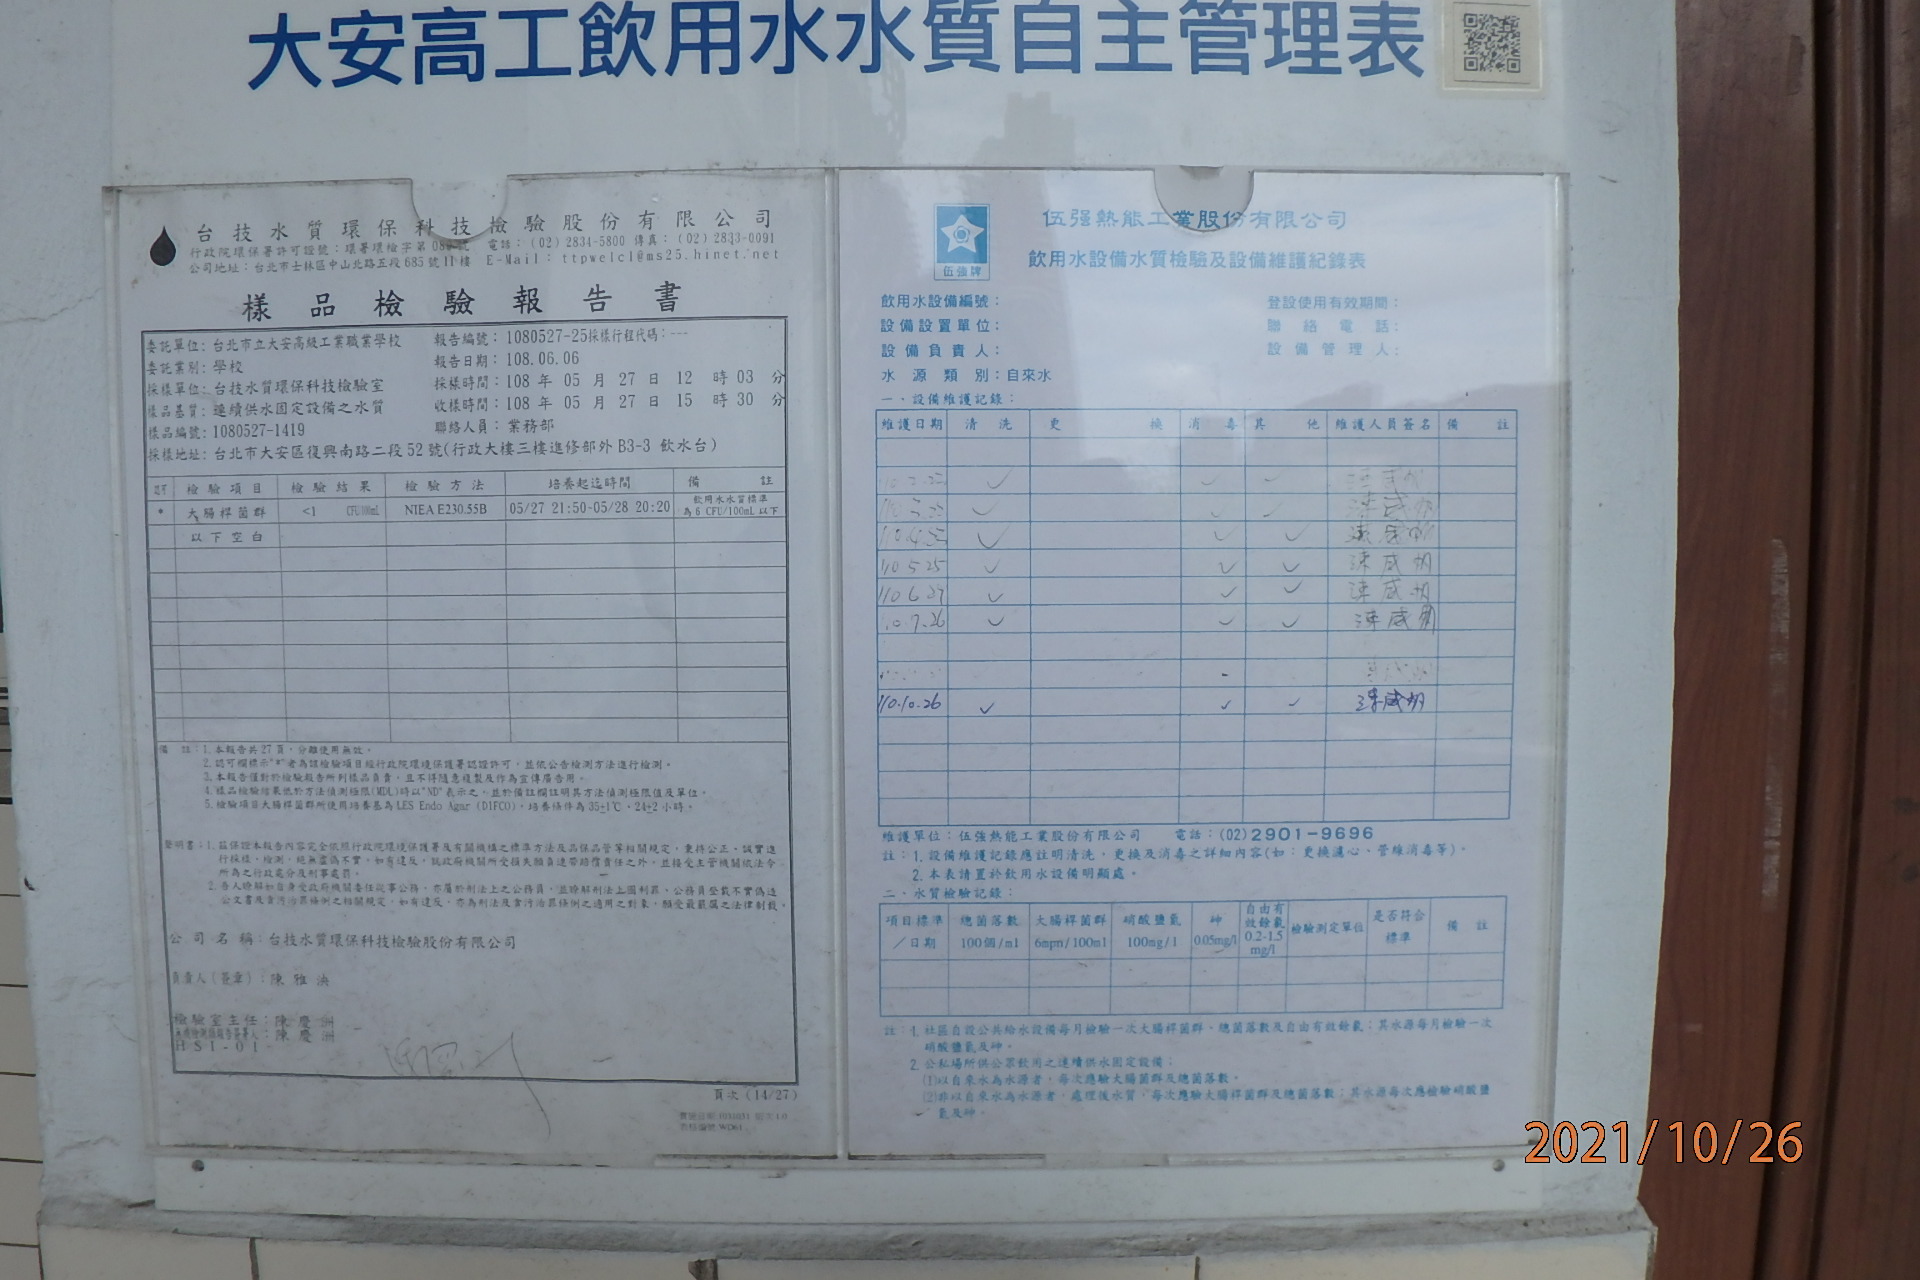 大安高工飲用水水質自主管理表
台技水質環保科技檢驗股份有限公司
行政院環保署許可證號：環署環檢字第 號 電話：(02) 2834-5800 傳真：(02) 2833-0091
公司地址：台北市士林區中山北路五段685號11樓 E-Mail：ttpwelcl@ms25.hinet.net
樣品檢驗報告書
委託單位：台北市立大安高級工業職業學校 報告編號：1080527-25採樣行程代碼：---
委託業別：學校 報告日期：108.06.06
採樣單位：台技水質環保科技檢驗室 採樣時間：108 年 05 月 27 日 12 時 03 分
樣品基質：連續供水固定設備之水質 收樣時間：108 年 05 月 27 日 15 時 30 分
樣品編號：1080527-1419 聯絡人員：業務部
採樣地址：台北市大安區復興南路二段52號(行政大樓三樓進修部外B3-3 飲水台)
認可 檢驗項目 檢驗結果 檢驗方法 培養起迄時間 備註
* 大腸桿菌群 <1 CFU/100mL NIEA E230.55B 05/27 21:50-05/28 20:20 飲用水水質標準為6 CFU/100mL以下
以下空白
備 註：1.本報告共27頁，分離使用無效。
2.認可欄標示"*"者為該檢驗項目經行政院環境保護署認證許可，並依公告檢測方法進行檢測。
3.本報告僅對於檢驗報告所列樣品負責，且不得隨意複製及作為宣傳廣告用。
4.樣品檢驗結果低於方法偵測極限(MDL)時以"ND"表示之，並於備註欄註明其方法偵測極限值及單位。
5.檢驗項目大腸桿菌群所使用培養基為LES Endo Agar (DIFCO)，培養條件為35±1℃，24±2小時。
聲明書：1.茲保證本報告內容完全依照行政院環境保護署及有關機構之標準方法及品保品管等相關規定，秉持公正、誠實進
行採樣、檢測。絕無虛偽不實，如有違反，就政府機關所受損失願負連帶賠償責任之外，並接受主管機關依法令
所為之行政處分及刑事處罰。
2.吾人瞭解如自身受政府機關委任從事公務，亦屬於刑法上之公務員，並瞭解刑法上圖利罪、公務員登載不實偽造
公文書及貪污治罪條例之相關規定，如有違反，亦為刑法及貪污治罪條例之適用之對象，願受最嚴厲之法律制裁。
公司名稱：台技水質環保科技檢驗股份有限公司
負責人(簽章)：陳雅泱
檢驗室主任：陳慶洲
陳慶洲
HSI-01
頁次 (14/27)
伍強牌
伍強熱能工業股份有限公司
飲用水設備水質檢驗及設備維護紀錄表
飲用水設備編號： 登設使用有效期間：
設備設置單位： 聯絡電話：
設備負責人： 設備管理人：
水源類別：自來水
一、設備維護記錄：
維護日期 清洗 更換 消毒 其他 維護人員簽名 備註
110.5.25 ✓ ✓ ✓
110.6.27 ✓ ✓ ✓
10.7.26 ✓ ✓ ✓
110.10.26 ✓ ✓ ✓
維護單位：伍強熱能工業股份有限公司 電話：(02)2901-9696
註：1.設備維護記錄應註明清洗，更換及消毒之詳細內容(如：更換濾心、管線消毒等)。
2.本表請置於飲用水設備明顯處。
二、水質檢驗記錄：
項目標準／日期 總菌落數100個/ml 大腸桿菌群6mpn/100ml 硝酸鹽氮100mg/l 砷0.05mg/l 自由有效餘氯0.2-1.5mg/l 檢驗測定單位 是否符合標準 備註
註：1.社區自設公共給水設備每月檢驗一次大腸桿菌群、總菌落數及自由有效餘氯；其水源每月檢驗一次
硝酸鹽氮及砷。
2.公私場所供公眾飲用之連續供水固定設備：
(1)以自來水為水源者，每次應驗大腸菌群及總菌落數。
(2)非以自來水為水源者，處理後水質，每次應驗大腸桿菌群及總菌落數；其水源每次應檢驗硝酸鹽
氮及砷。
2021/10/26